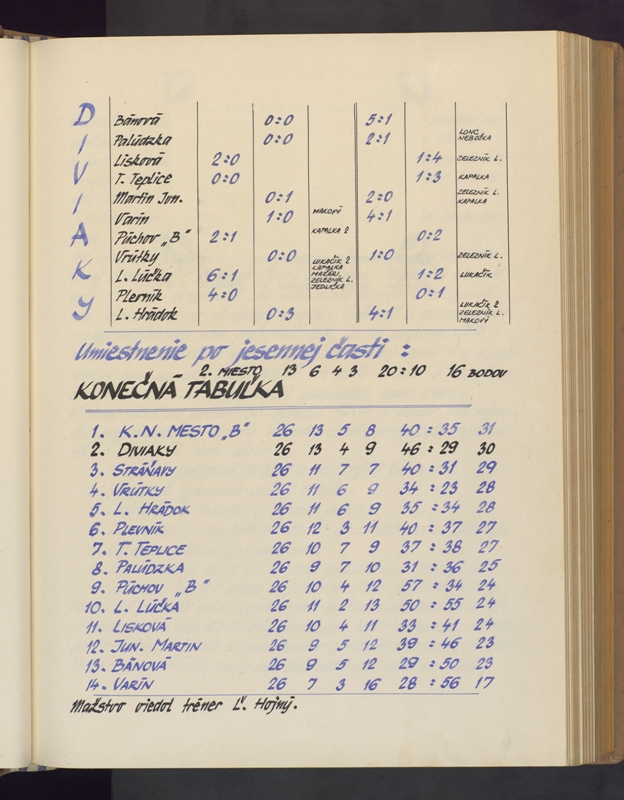 DIVIAKY
Bánová 0:0 5:1
Palúdzka 0:0 2:1 LONC. NEBUŠKA
Lisková 2:0 1:4 ŽELEZNÍK L.
T. Teplice 0:0 1:3 KAPALKA
Martin Jun. 0:1 2:0 ŽELEZNÍK L. KAPALKA
Varín 1:0 MAKOVÝ 4:1
Púchov „B" 2:1 KAPALKA 2 0:2
Vrútky 0:0 1:0 ŽELEZNÍK L.
L. Lúčka 6:1 LUKAČÍK 2 KAPALKA ŽELEZNÍK L. JEDLIČKA 1:2 LUKAČÍK
Plerník 4:0 0:1
L. Hrádok 0:3 4:1 LUKAČÍK 2 ŽELEZNÍK L. MAKOVÝ
Umiestnenie po jesennej časti :
2. MIESTO 13 6 4 3 20:10 16 BODOV
KONEČNÁ TABUĽKA
1. K.N. MESTO „B" 26 13 5 8 40 : 35 31
2. DIVIAKY 26 13 4 9 46 : 29 30
3. STRÁŇAVY 26 11 7 7 40 : 31 29
4. VRÚTKY 26 11 6 9 34 : 23 28
5. L. HRÁDOK 26 11 6 9 35 : 34 28
6. PLEVNÍK 26 12 3 11 40 : 37 27
7. T. TEPLICE 26 10 7 9 37 : 38 27
8. PALÚDZKA 26 9 7 10 31 : 36 25
9. PÚCHOV „B" 26 10 4 12 57 : 34 24
10. L. LÚČKA 26 11 2 13 50 : 55 24
11. LISKOVÁ 26 10 4 11 33 : 41 24
12. JUN. MARTIN 26 9 5 12 39 : 46 23
13. BÁNOVÁ 26 9 5 12 29 : 50 23
14. VARÍN 26 7 3 16 28 : 56 17
Mažstvo viedol tréner Ľ. Hojný.